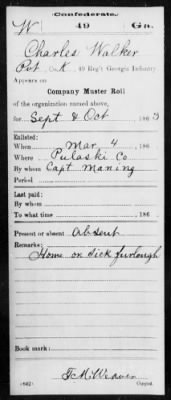 Confederate.
W 49 Ga.
Charles Walker
Pvt, Co. K, 49 Reg't Georgia Infantry
Appears on
Company Muster Roll
of the organization named above,
for Sept & Oct , 1863
Enlisted:
When Mar. 4 , 186
Where Pulaski Co
By whom Capt Maning
Period
Last paid:
By whom
To what time , 186
Present or absent Absent
Remarks:
Home on sick furlough
Book mark:
(642)
Copyist.